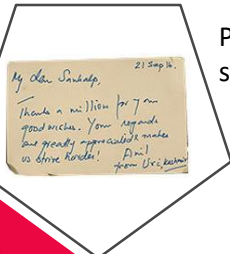 21 Sep 16.
My dear Sankalp,
Thanks a million for your
good wishes. Your regards
are greatly appreciated & makes
us strive harder!
Anil
from Uri, Kashmir
P
s